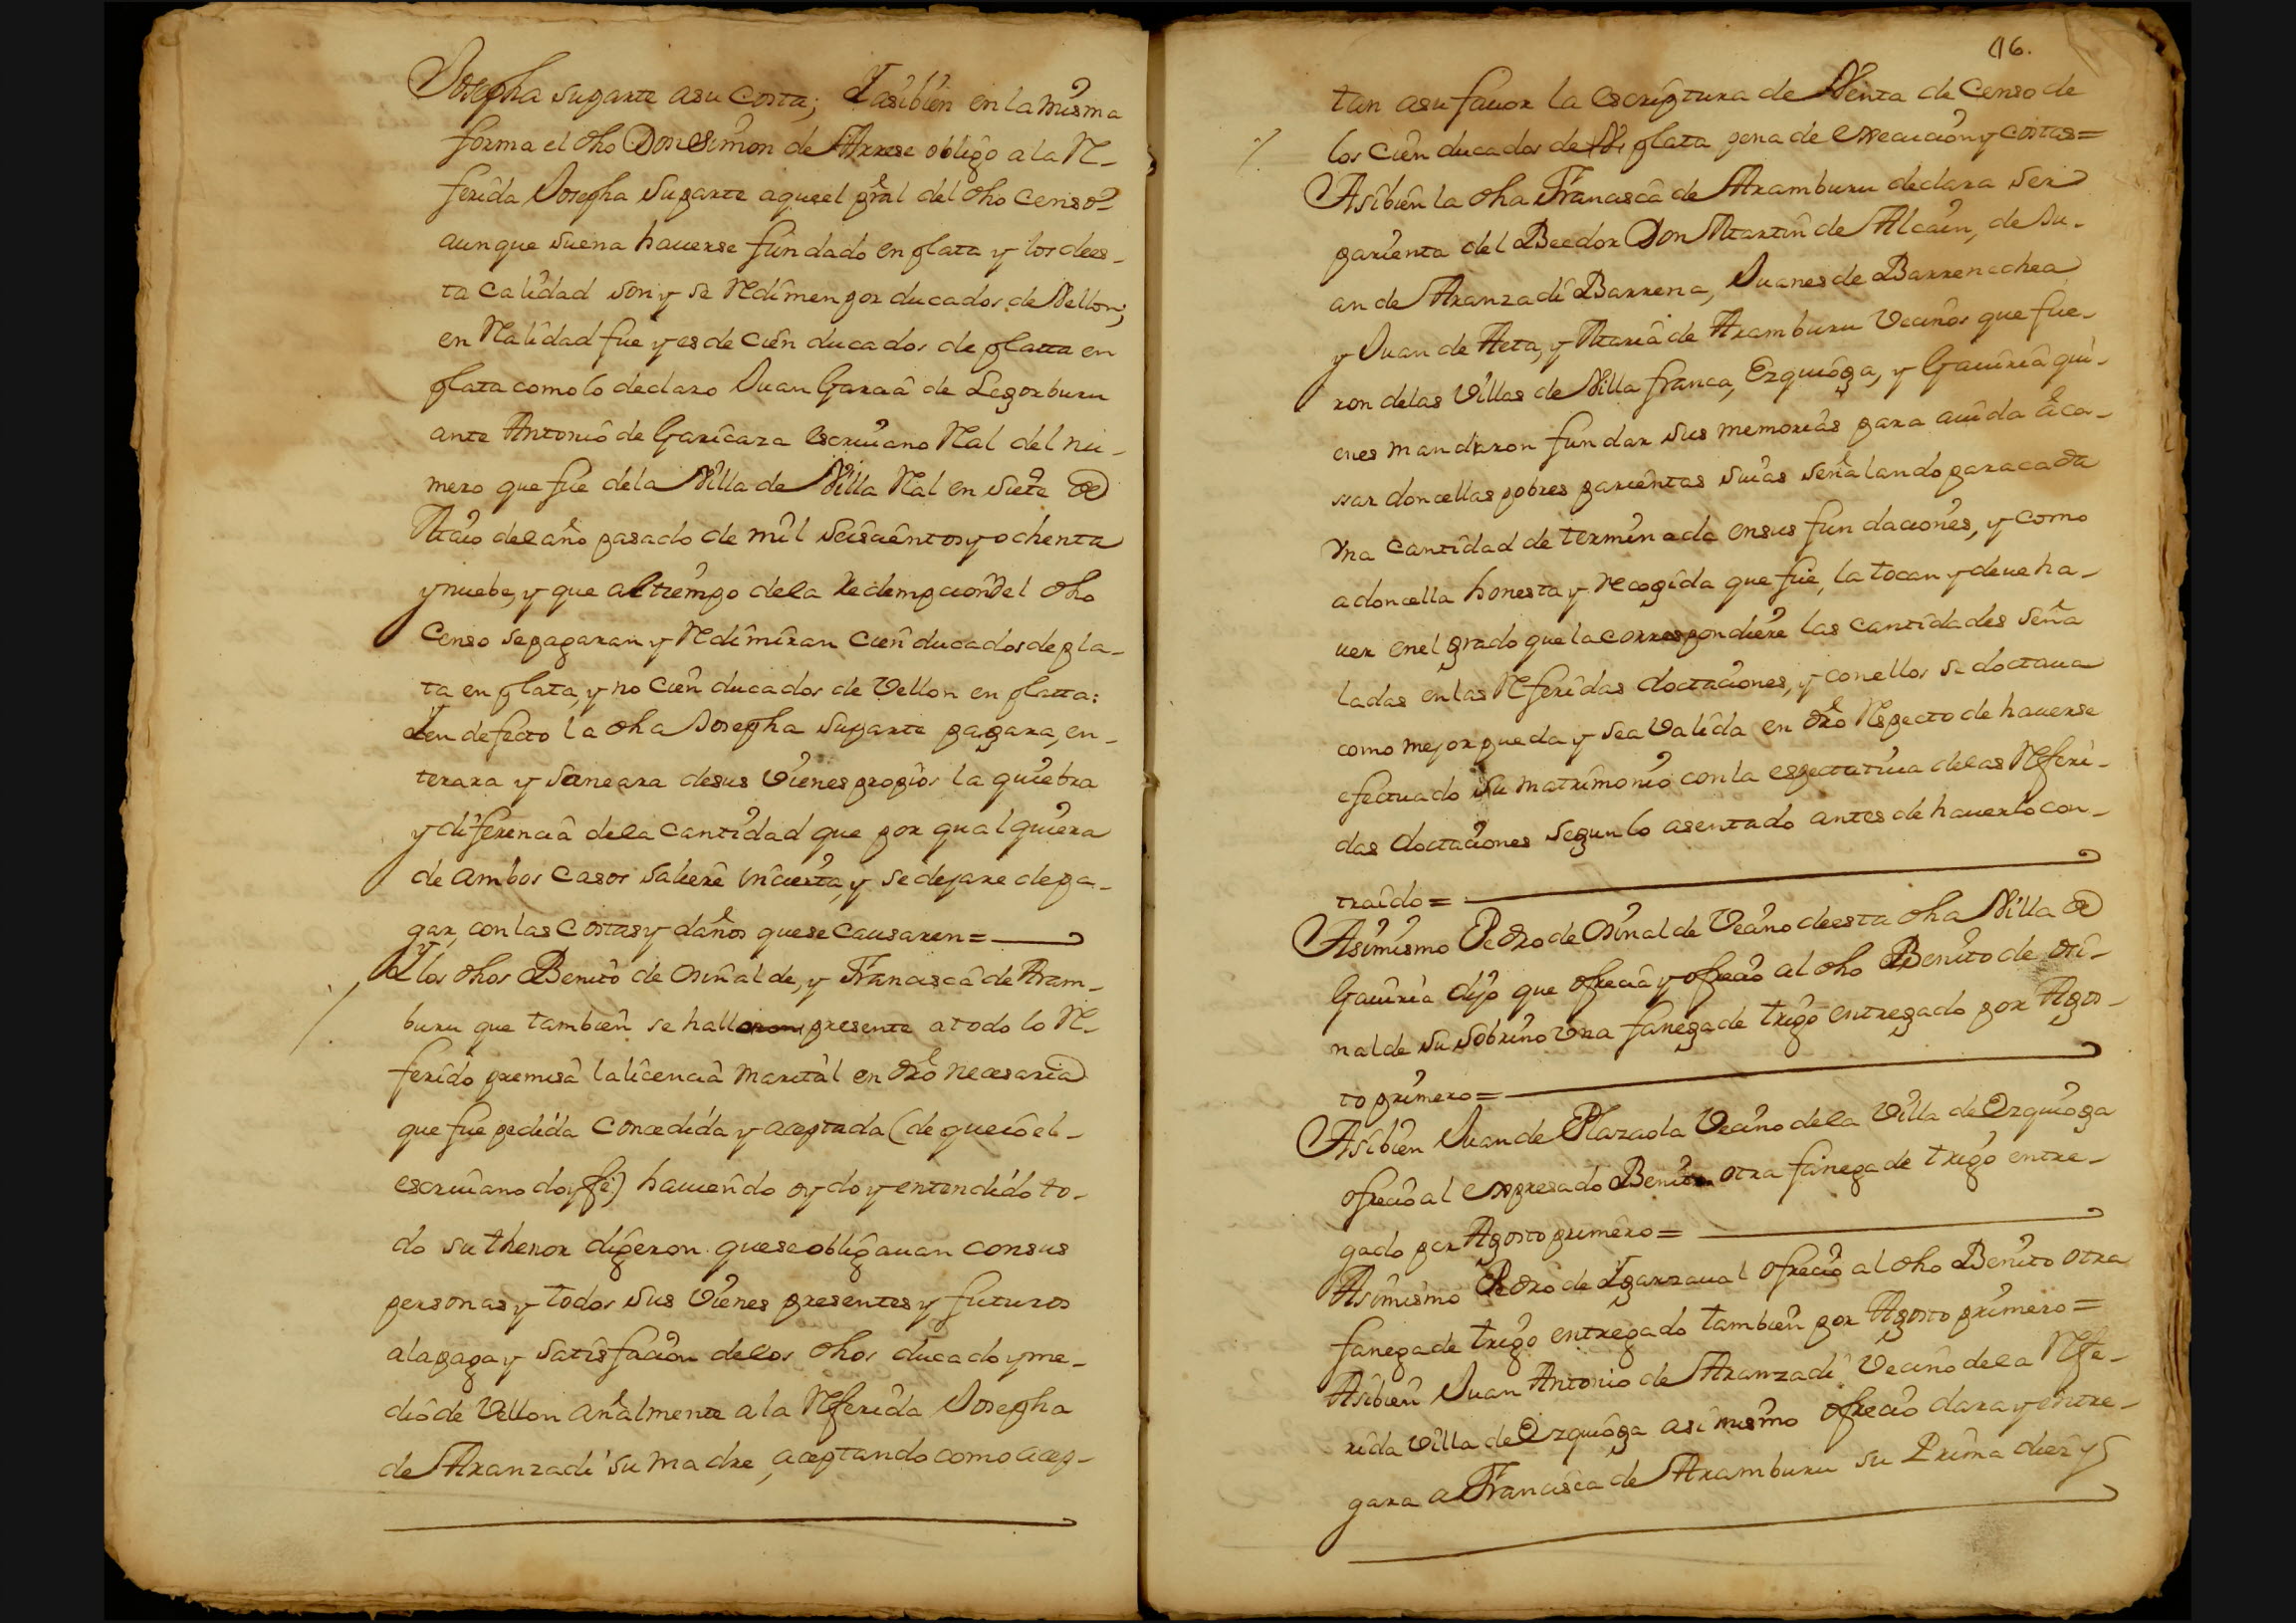 Josepha suparte asu costa; Yasibien en la misma
forma el dho Don Simon de Arrese obligo a la Re-
ferida Josepha suparte aque el pral del dho Censo
aunque suena hauerse fundado en plata y los dees-
ta calidad son y se Redimen por ducados de Vellon;
en Realidad fue y es de Cien ducados de platta en
plata como lo declaro Juan Garcia de Legorburu
ante Antonio de Garicara escriuano Real del nu-
mero que fue dela Villa de Villa Real en siete de
Maio del año pasado de mil seiscientos y ochenta
y nuebe, y que al tiempo dela Redempcion del dho
Censo se pagaran y Redimiran Cien ducados de pla-
ta en plata, y no Cien ducados de Vellon en platta:
Y en defecto la dha Josepha suparte pagara, en-
terara y saneara desus Vienes propios la quiebra
y diferencia dela Cantidad que por qualquiera
de ambos Casos saliere incierta, y se dejare depa-
gar, con las Costas y daños que se Causaren =
Y los dhos Benito de Osinalde, y Francisca de Aram-
buru que tambien se hallaron presente atodo lo Re-
ferido premisa la licencia marital en dro necesaria
que fue pedida Concedida y aceptada (de que io el
escriuano doy fe) hauiendo oydo y entendido to-
do su thenor digeron que se obligauan consus
personas y todos sus Vienes presentes y futuros
ala paga y satisfacion delos dhos ducado y me-
dio de Vellon añalmente a la Referida Josepha
de Aranzadi su madre, aceptando como acep-
116.
tan asu fauor la escriptura de Venta de Censo de
los Cien ducados de plata pena de execucion y costas =
Asibien la dha Francisca de Aramburu declara ser
parienta del Beedor Don Martin de Alcain, de Ju-
an de Aranzadi Barrena, Juanes de Barrenechea
y Juan de Aeta, y Maria de Aramburu Vecinos que fue-
ron delas Villas de Villa franca, Ezquioga, y Gauiria qui-
enes mandaron fundar sus memorias para aiuda á ca-
ssar doncellas pobres parientas suias señalando para cada
vna Cantidad determinada ensus fundaciones, y como
a doncella honesta y recogida que fue, la tocan y deue ha-
uer enel grado que la correspondiere las cantidades seña
ladas en las Referidas doctaciones, y con ellos se doctaua
como mejor pueda y sea Valida en dro Respecto de hauerse
efectuado su matrimonio con la espectatiua delas Referi-
das doctaciones segun lo asentado antes de hauerlo con-
traido =
Asimismo Pedro de Osinalde Vecino deesta dha Villa de
Gauiria dijo que ofrecia y ofrecio al dho Benito de Osi-
nalde su sobrino vna fanega de trigo entregado por Agos-
to primero =
Asibien Juan de Plazaola Vecino dela Villa de Ezquioga
ofrecio al expresado Benito otra fanega de trigo entre-
gado por Agosto primero =
Asimismo Pedro de Yparzaual ofrecio al dho Benito otra
fanega de trigo entregado tambien por Agosto primero =
Asibien Juan Antonio de Aranzadi Vecino dela Refe-
rida Villa de Ezquioga asi mismo ofrecio dara y entre-
gara a Francisca de Aramburu su Prima diez y